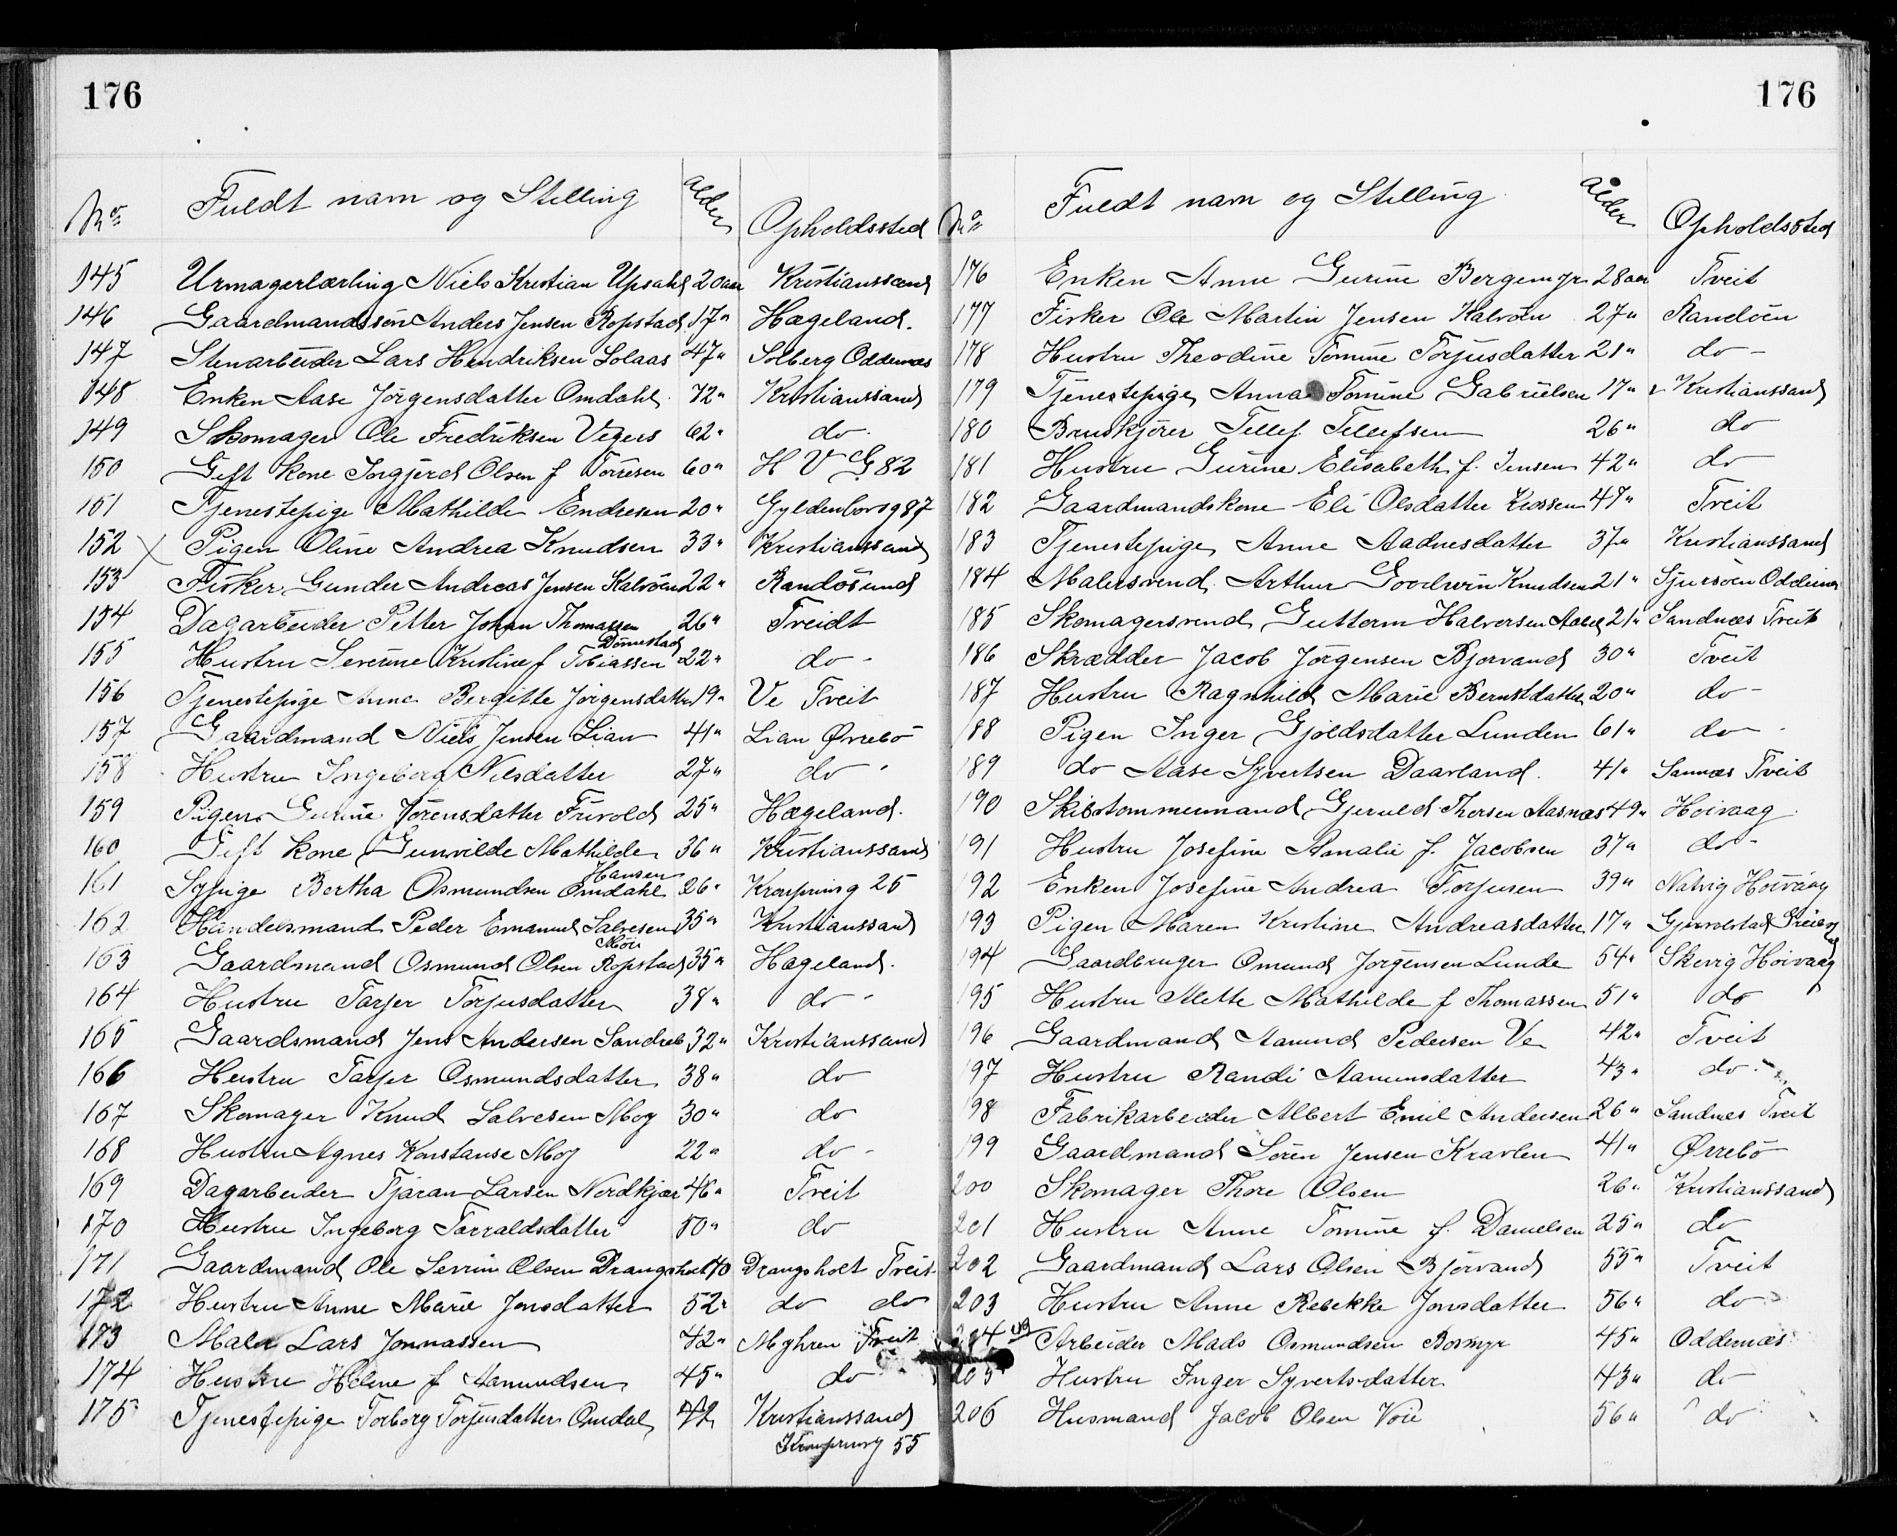 176
No Fuldt navn og Stilling alder Opholdssted
145 Urmagerlærling Niels Kristian Upsahl 20 aar Kristianssand
146 Gaardmandssøn Anders Jensen Ropstad 17" Hægeland.
147 Stenarbeider Lars Hendriksen Solaas 47" Solberg Oddernæs
148 Enken Aase Jørgensdatter Omdahl 72" Kristianssand
149 Skomager Ole Fredriksen Vegers 62" do
150 Gift kone Ingjerd Olsen f Torresen 60" H V G 82
151 Tjenestepige Mathilde Endresen 20" Gyldenlovsg 87
152 Pigen Oline Andrea Knudsen 33" Kristianssand
153 Fisker Gunder Andreas Jensen Kalvøen 22" Randøsund
154 Dagarbeider Petter Johan Thomassen 26" Tveidt
Dønnestad
155 Hustru Severine Kristine f Tobiassen 22" do -
156 Tjenestepige Anne Bergitte Jørgensdatter 19" Ve Tveit
157 Gaardmand Niels Jensen Lian 41" Lian Øvrebø
158 Hustru Ingeborg Nilsdatter 27" do "
159 Pigen Gurine Sørensdatter Frivold 25" Hægeland.
160 Gift kone Gunvilde Mathilde 36" Kristianssand
Hansen
161 Sypige Bertha Osmundsen Omdahl 26" Kronprinsg 25
162 Handelsmand Peder Emanuel Salvesen 35" Kristianssand
Møie
163 Gaardmand Osmund Olsen Ropstad 35" Hægeland.
164 Hustru Tarjer Torjusdatter 38" do "
165 Gaardsmand Jens Andersen Sandreb 32" Kristianssand
166 Hustru Tarjer Osmundsdatter 38" do
167 Skomager Knud Salvesen Moy 30" do
168 Hustru Agnes Konstanse Moy 22" do -
169 Dagarbeider Tjøran Larsen Nordkjær 46" Tveit
170 Hustru Ingeborg Tarraldsdatter 50" do
171 Gaardmand Ole Severin Olsen Drangsholt 40 Drangsholt Tveit
172 Hustru Anne Marie Jonsdatter 52" do do
173 Maler Lars Jonnassen 42" Moghren Tveit
174 Hustru Helene f Aamundsen 45" do
175 Tjenestepige Torborg Torjusdatter Omdal 42 Kristianssand
Kronprinsg 55
176
No Fuldt navn og Stilling alder Opholdssted
176 Enken Anne Gurine Bergemyr 28 aar Tveit
177 Fisker Ole Martin Jensen Kalvøen 27" Randøen
178 Hustru Theodine Tomine Torjusdatter 21" do -
179 Tjenestepige Anna Tomine Gabrielsen 17" Kristianssand
180 Bruskjører Tellef Tellefsen 26" do
181 Hustru Gurine Elisabeth f. Jensen 42" do
182 Gaardmandskone Eli Olsdatter Krossen 47" Tveit
183 Tjenestepige Anne Aadnesdatter 37" Kristianssand
184 Malersvend Arthur Goodwin Knudsen 21" Sjursøen Oddernes
185 Skomagersvend Guttorm Halvorsen Aabel 21" Sandnæs Tveit
186 Skrædder Jacob Jørgensen Bjorvand 30" Tveit
187 Hustru Ragnhild Marie Berntdatter 20" do -
188 Pigen Inger Gjoldsdatter Lunden 61" do -
189 do Aase Syvertsen Daavland. 41" Sannæs Tveit
190 Skibstømmermand Gjeruld Thorsen Aasnæs 49" Høivaag
191 Hustru Josefine Amalie f. Jacobsen 37" do -
192 Enken Josefine Andrea Torjusen 39" Natvig Høivaag
193 Pigen Maren Kristine Andreasdatter 17" Gjervoldstad
194 Gaardbruger Omund Jørgensen Lunde 54" Skevig Høivaag
195 Hustru Mette Mathilde f Thomassen 51" do
196 Gaardmand Aanund Pedersen Ve 42" Tveit
197 Hustru Randi Aanunsdatter 43" do -
198 Fabrikarbeider Albert Emil Andersen 26" Sandnes Tveit
199 Gaardmand Søren Jensen Kravlen 41" Øvrebø
200 Skomager Thore Olsen 26" Kristianssand
201 Hustru Anne Tomine f. Danielsen 25" do
202 Gaardmand Lars Olsen Bjørvand 55" Tveit
203 Hustru Anne Rebekke Jonsdatter 56" do
204 Arbeider Mads Osmundsen Bosmyr 45" Oddernæs
205 Hustru Inger Syvertsdatter 43" do
206 Husmand Jacob Olsen Voie 56" do